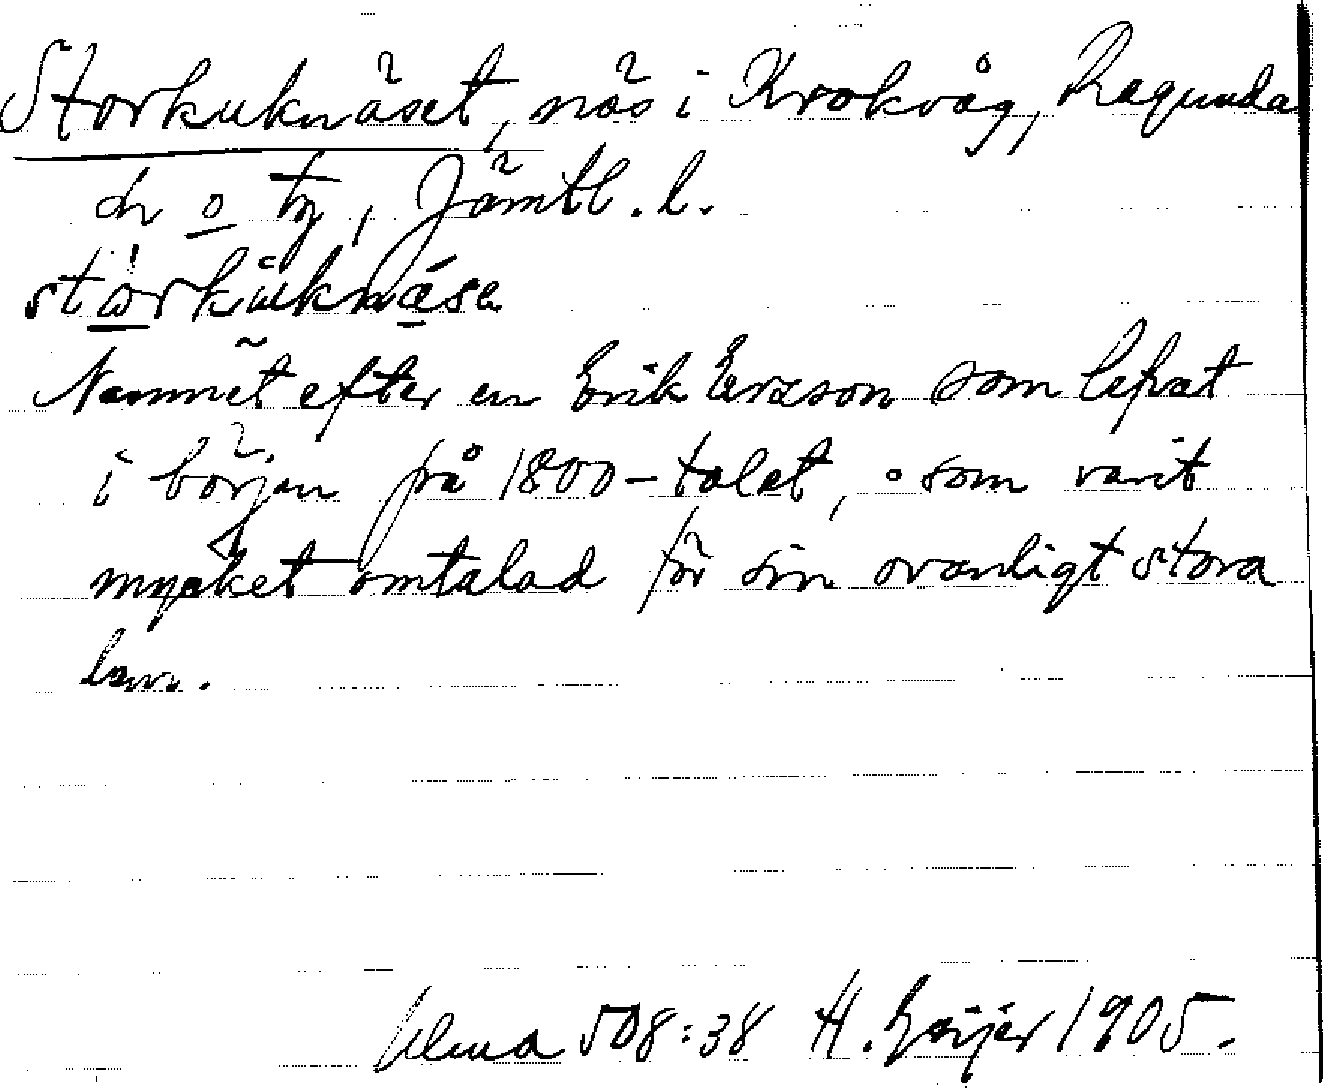 Storkuknäset, näs i Krokvåg, Ragunda
sn o tg, Jämtl. l.
stơrkùknäse
Namnet efter en Erik Ersson som lefvat
i början på 1800-talet, o som varit
mycket omtalad för sin ovanligt stora
lem.
Ulma 508:38 H. Geijer 1905.